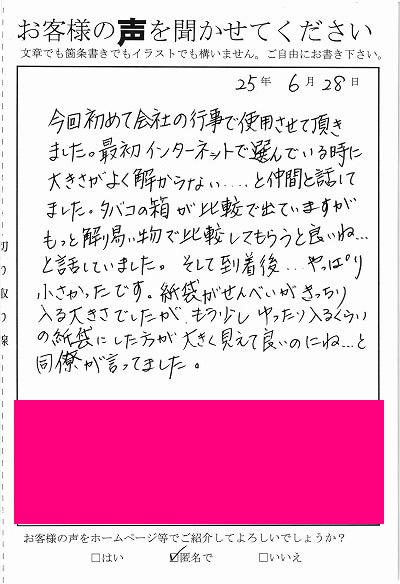 お客様の声を聞かせてください
文章でも箇条書きでもイラストでも構いません。ご自由にお書き下さい。
25年 6月 28日
今回初めて会社の行事で使用させて頂き
ました。最初インターネットで選んでいる時に
大きさがよく解からない....と仲間と話して
ました。タバコの箱が比較で出ていますが
もっと解り易い物で比較してもらうと良いね...
と話していました。そして到着後...やっぱり
小さかったです。紙袋がせんべいがきっちり
入る大きさでしたが、もう少しゆったり入るくらい
の紙袋にした方が大きく見えて良いのにね...と
同僚が言ってました。
切り取り線
お客様の声をホームページ等でご紹介してよろしいでしょうか?
□はい ☑匿名で □いいえ